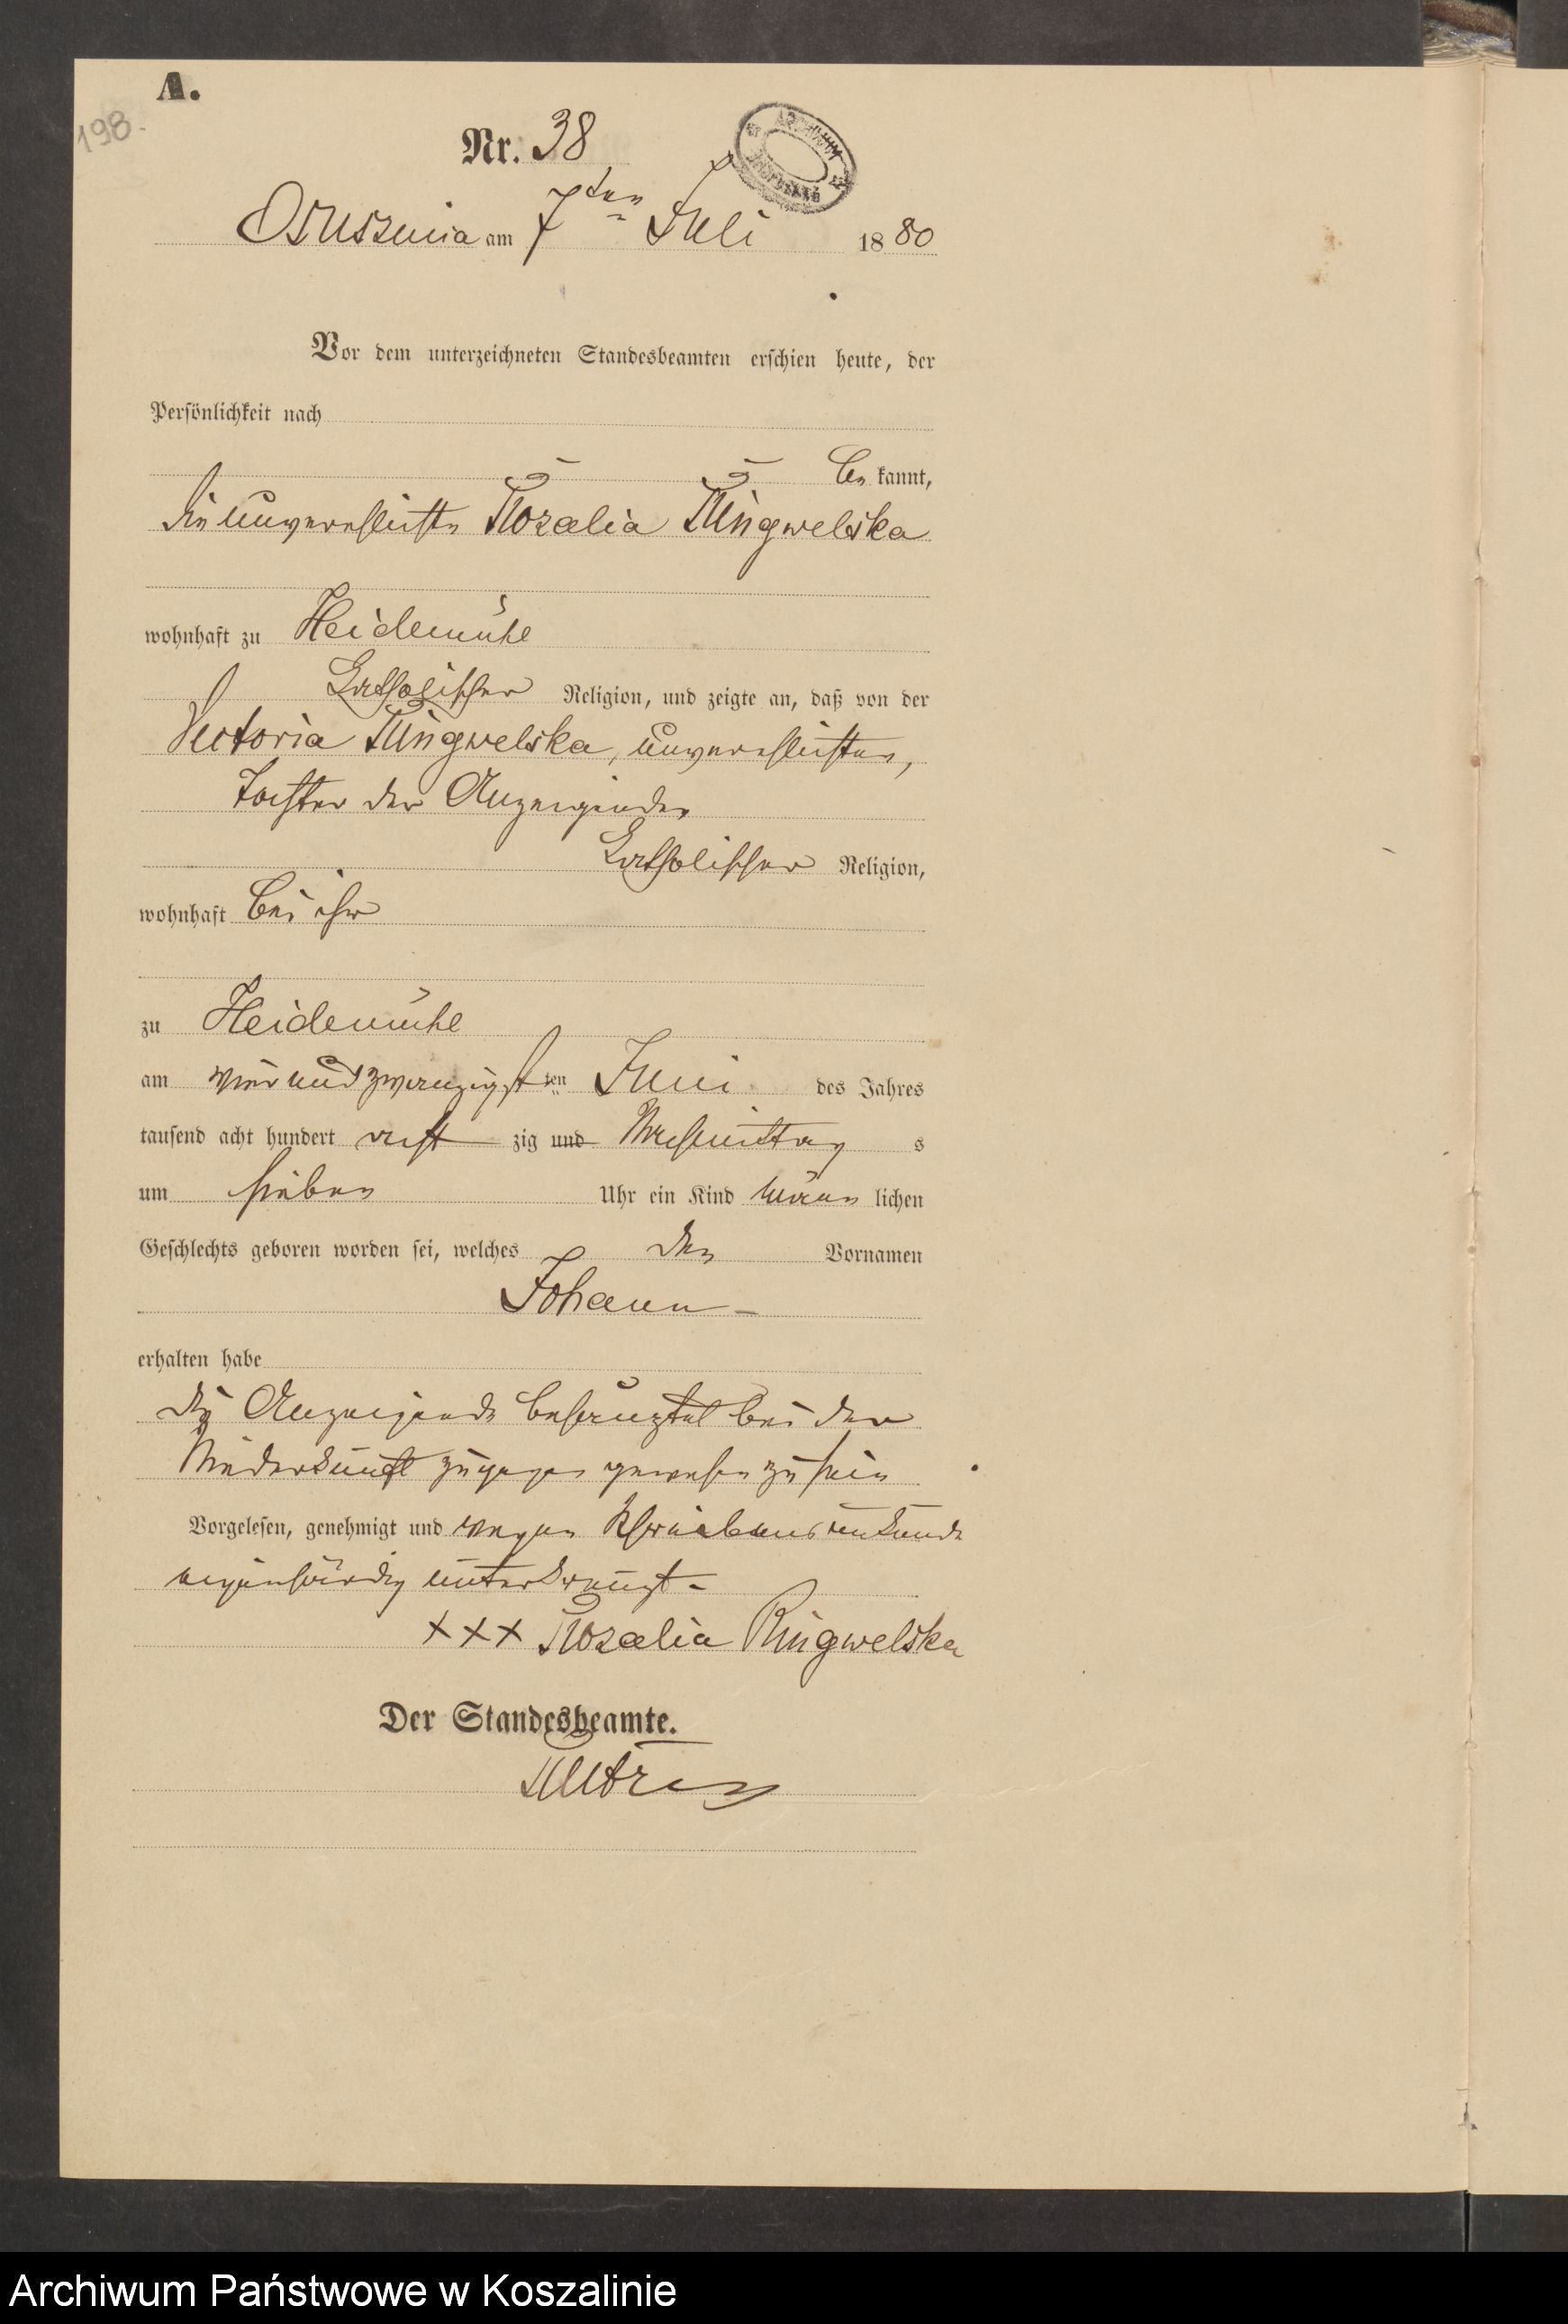 A.
198.
Nr. 38
Osusznica am 7ten Juli 1880
Vor dem unterzeichneten Standesbeamten erschien heute, der
Persönlichkeit nach
be kannt,
die unverehelichte Rozalia Ringwelska
wohnhaft zu Heidemühl
katholischer Religion, und zeigte an, daß von der
Victoria Ringwelska, unverehelichten,
Tochter der Anzeigenden
katholischer Religion,
wohnhaft bei ihr
zu Heidemühl
am vier und zwanzigsten ten Juni des Jahres
tausend acht hundert acht zig und Nachmittag s
um sieben Uhr ein Kind männ lichen
Geschlechts geboren worden sei, welches den Vornamen
Johann
erhalten habe
Die Anzeigende bekundet bei der
Niederkunft zugegen gewesen zu sein
Vorgelesen, genehmigt und wegen Schreibensunkunde
eigenhändig unterkreuzt
XXX Rozalia Ringwelska
Der Standesbeamte.
Archiwum Państwowe w Koszalinie